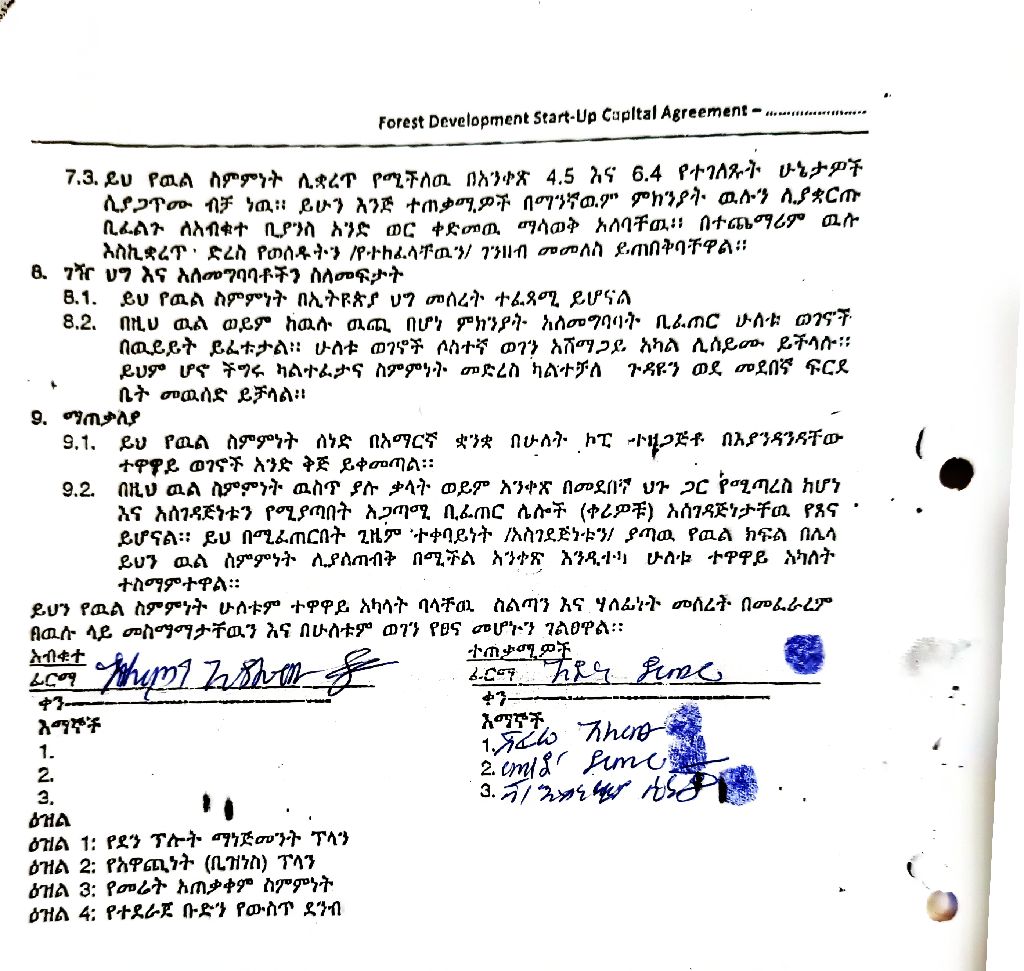 Forest Development Start-Up Capital Agreement – ........................
7.3. ይህ የዉል ስምምነት ሊቋረጥ የሚችለዉ በአንቀጽ 4.5 እና 6.4 የተገለጹት ሁኔታዎች
ሲያጋጥሙ ብቻ ነዉ። ይሁን እንጅ ተጠቃሚዎች በማንኛዉም ምክንያት ዉሉን ሲያቋርጡ
ቢፈልጉ ለአብቁተ ቢያንስ አንድ ወር ቀድመዉ ማሳወቅ አለባቸዉ። በተጨማሪም ዉሉ
እስኪቋረጥ ድረስ የወሰዱትን /የተከፈላቸዉን/ ገንዘብ መመለስ ይጠበቅባቸዋል።
8. ገዥ ህግ እና አለመግባባቶችን ስለመፍታት
8.1. ይህ የዉል ስምምነት በኢትዩጵያ ህግ መሰረት ተፈጻሚ ይሆናል
8.2. በዚህ ዉል ወይም ከዉሉ ዉጪ በሆነ ምክንያት አለመግባባት ቢፈጠር ሁለቱ ወገኖች
በዉይይት ይፈቱታል። ሁለቱ ወገኖች ሶስተኛ ወገን አሸማጋይ አካል ሊሰይሙ ይችላሉ።
ይህም ሆኖ ችግሩ ካልተፈታና ስምምነት መድረስ ካልተቻለ ጉዳዩን ወደ መደበኛ ፍርደ
ቤት መዉሰድ ይቻላል።
9. ማጠቃለያ
9.1. ይህ የዉል ስምምነት ሰነድ በአማርኛ ቋንቋ በሁለት ኮፒ ተዘጋጅቶ በእያንዳንዳቸው
ተዋዋይ ወገኖች አንድ ቅጅ ይቀመጣል።
9.2. በዚህ ዉል ስምምነት ዉስጥ ያሉ ቃላት ወይም አንቀጽ በመደበኛ ህጉ ጋር የሚጣረስ ከሆነ
እና አስገዳጅነቱን የሚያጣበት አጋጣሚ ቢፈጠር ሌሎች (ቀሪዎቹ) አስገዳጅነታቸዉ የጸና
ይሆናል። ይህ በሚፈጠርበት ጊዜም ተቀባይነት /አስገደጅነቱን/ ያጣዉ የዉል ክፍል በሌላ
ይህን ዉል ስምምነት ሊያስጠብቅ በሚችል አንቀጽ እንዲተካ ሁለቱ ተዋዋይ አካላት
ተስማምተዋል።
ይህን የዉል ስምምነት ሁለቱም ተዋዋይ አካላት ባላቸዉ ስልጣን እና ሃላፊነት መሰረት በመፈራረም
በዉሉ ላይ መስማማታቸዉን እና በሁለቱም ወገን የፀና መሆኑን ገልፀዋል።
አብቁተ
ፊርማ
ቀን
እማኞች
1.
2.
3.
ተጠቃሚዎች
ፊርማ
ቀን
እማኞች
1.
2.
3.
ዕዝል
ዕዝል 1: የደን ፕሎት ማነጅመንት ፕላን
ዕዝል 2: የአዋጪነት (ቢዝነስ) ፕላን
ዕዝል 3: የመሬት አጠቃቀም ስምምነት
ዕዝል 4: የተደራጀ ቡድን የውስጥ ደንብ